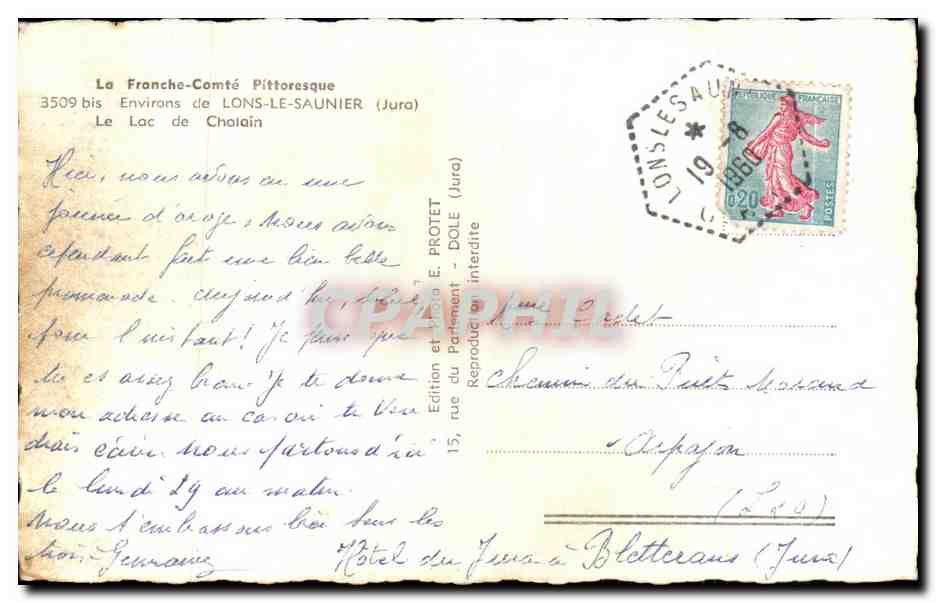 La Franche-Comté Pittoresque
3509 bis Environs de LONS-LE-SAUNIER (Jura)
Le Lac de Chalain
Hier, nous avons eu une
journée d'orage, nous avons
cependant fait une bien belle
promenade. aujourd'hui, soleil
pour l'instant! Je pense que
tu es assez Je te donne
mon adresse au cas où tu vou
drais écrire nous partons d'ici
le lundi 29 au matin.
Nous t'embrassons bien tous les
trois. Germaine
Hôtel du Jura à Bletterans (Jura)
Edition et Photo E. PROTET
15, rue du Parlement - DOLE (Jura)
Reproduction interdite
LONS LE SAU
19 - 8
1960
REPUBLIQUE FRANÇAISE
0,20
POSTES
CPAPHIL
Chemin du Puits
Arpajon
(S&O)